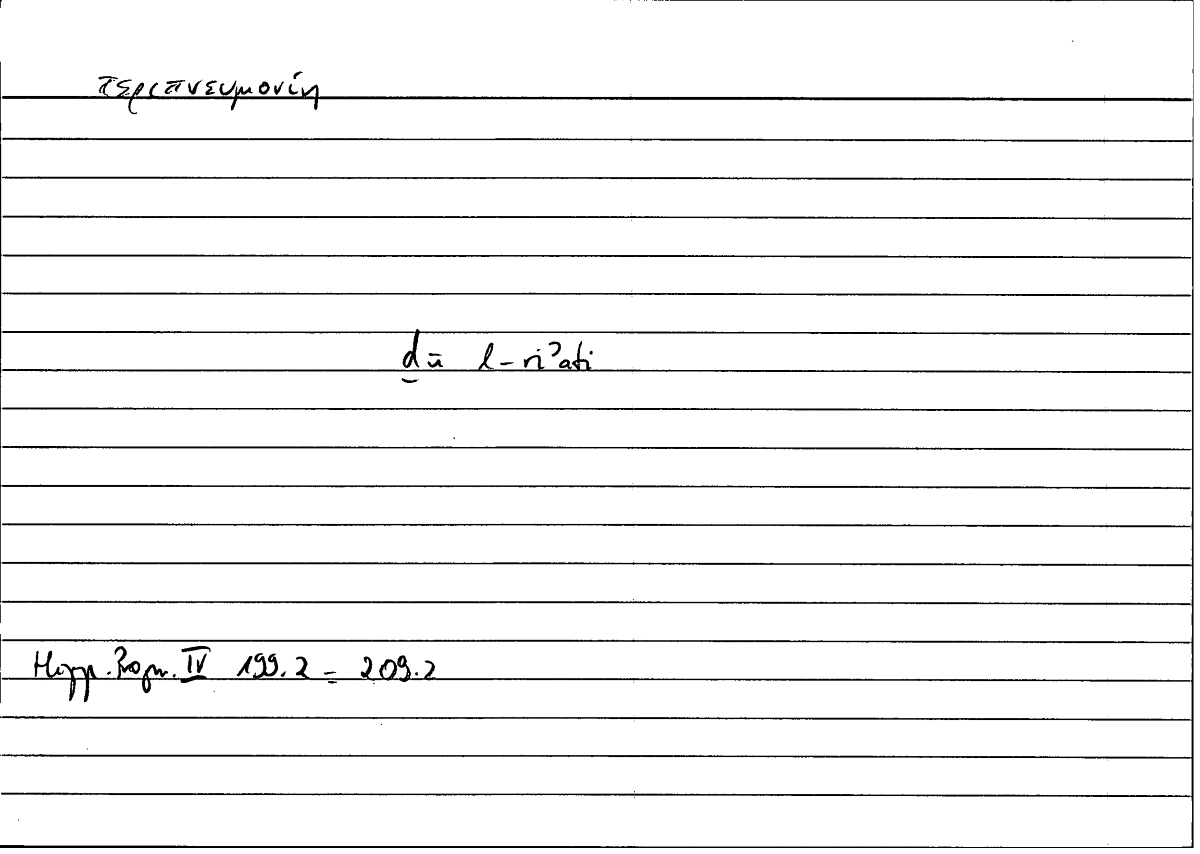 περιπνευμονίη
ḏū l-riʾati
Hipp. Progn. IV 199.2 = 209.2